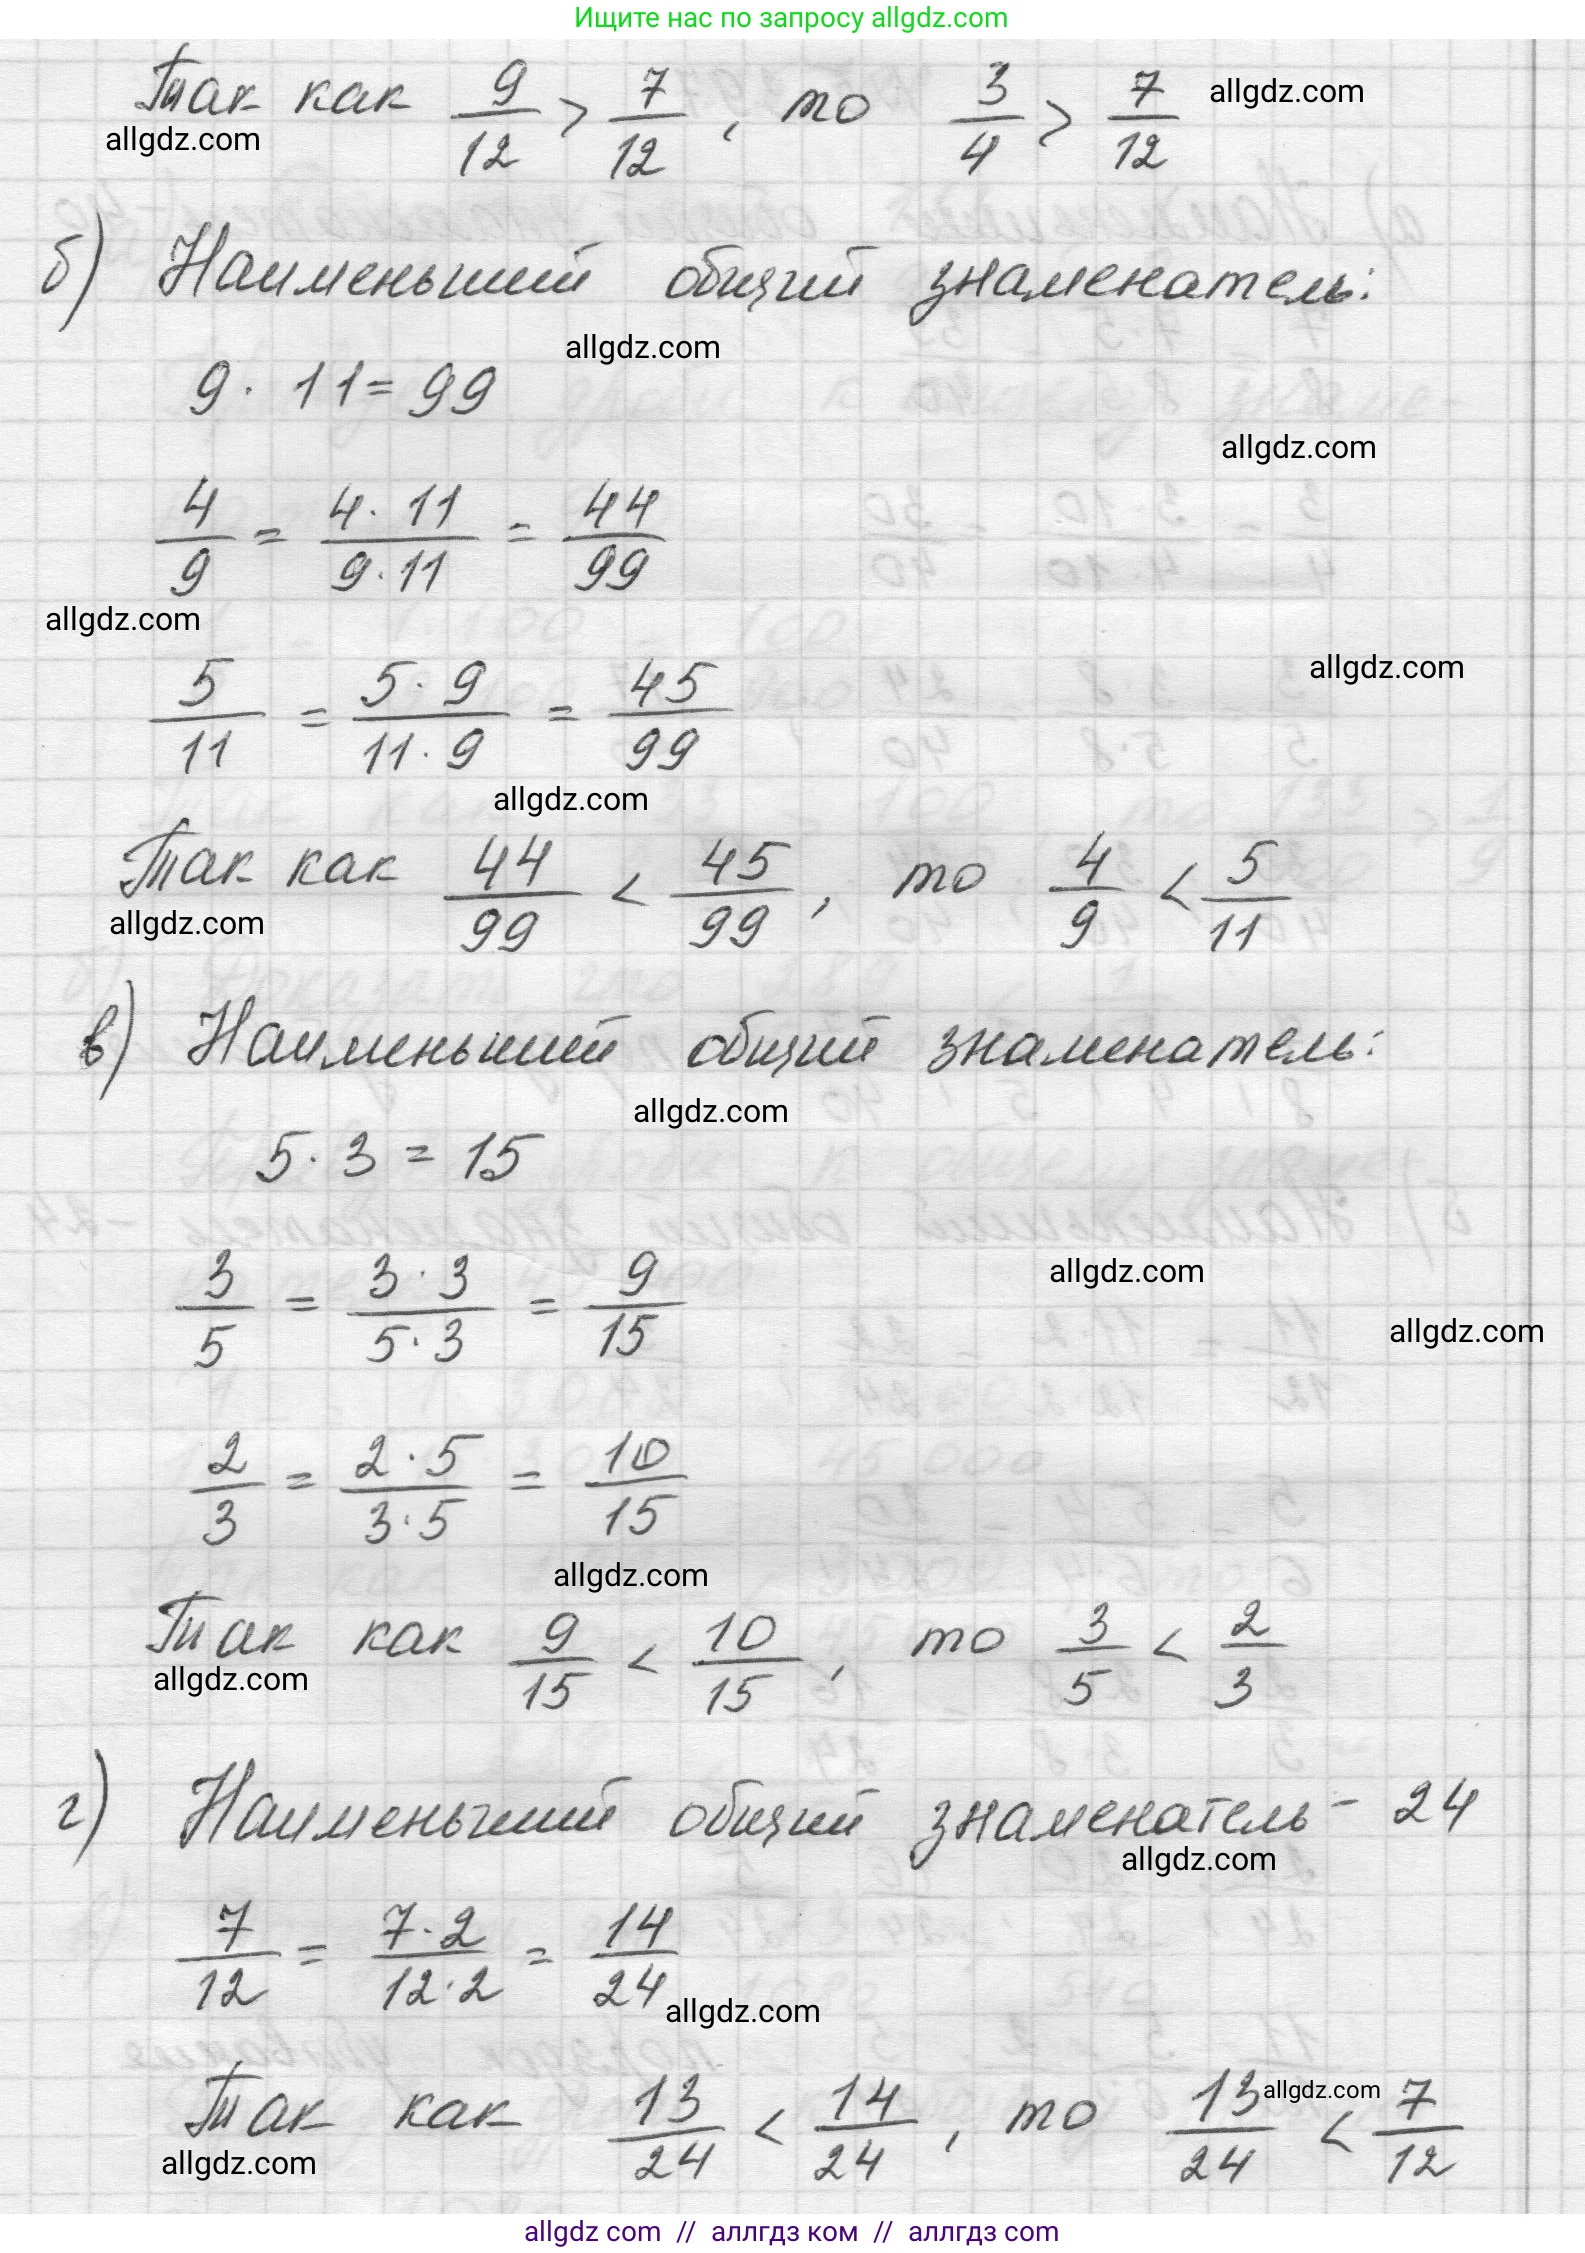 Ищите нас по запросу allgdz.com
Так как 9/12 > 7/12, то 3/4 > 7/12
allgdz.com
allgdz.com
б) Наименьший общий знаменатель:
allgdz.com
9 · 11 = 99
allgdz.com
4/9 = 4·11/9·11 = 44/99
allgdz.com
allgdz.com
5/11 = 5·9/11·9 = 45/99
allgdz.com
Так как 44/99 < 45/99, то 4/9 < 5/11
allgdz.com
в) Наименьший общий знаменатель:
allgdz.com
5 · 3 = 15
allgdz.com
3/5 = 3·3/5·3 = 9/15
allgdz.com
2/3 = 2·5/3·5 = 10/15
allgdz.com
Так как 9/15 < 10/15, то 3/5 < 2/3
allgdz.com
г) Наименьший общий знаменатель - 24
allgdz.com
7/12 = 7·2/12·2 = 14/24
allgdz.com
Так как 13/24 < 14/24, то 13/24 < 7/12
allgdz.com
allgdz.com
allgdz com // аллгдз ком // аллгдз com